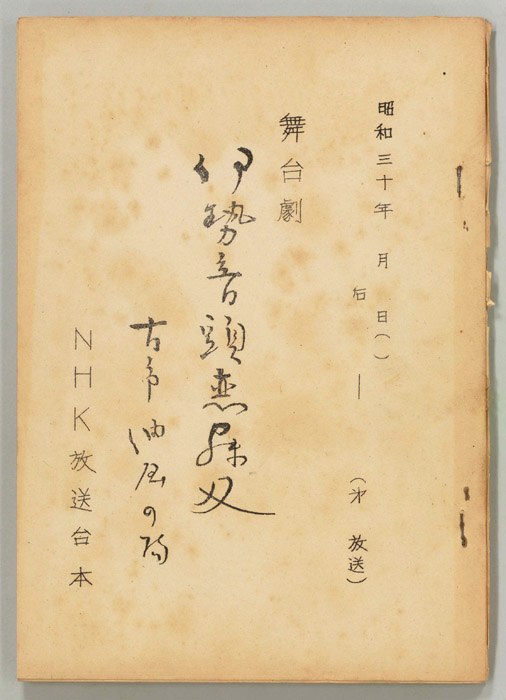 昭和三十年 月 日( )
后 ― (㐧 放送)
舞台劇
伊勢音頭恋寐刃
古市油屋の場
NHK放送台本